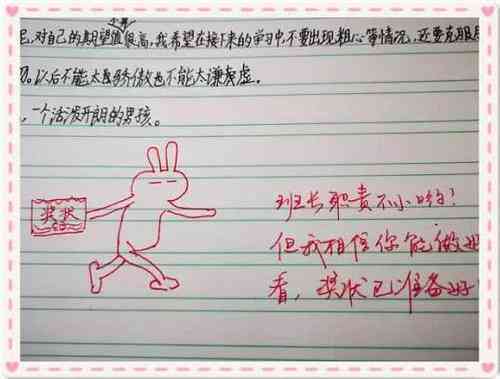 足,对自己的期望值很高,我希望在接下来的学习中,不要出现粗心等情况,还要克服
。以后不能太骄傲也不能太谦虚。
,一个活泼开朗的男孩。
奖状
班长职责不小哟!
但我相信你能做好
看,奖状已准备好